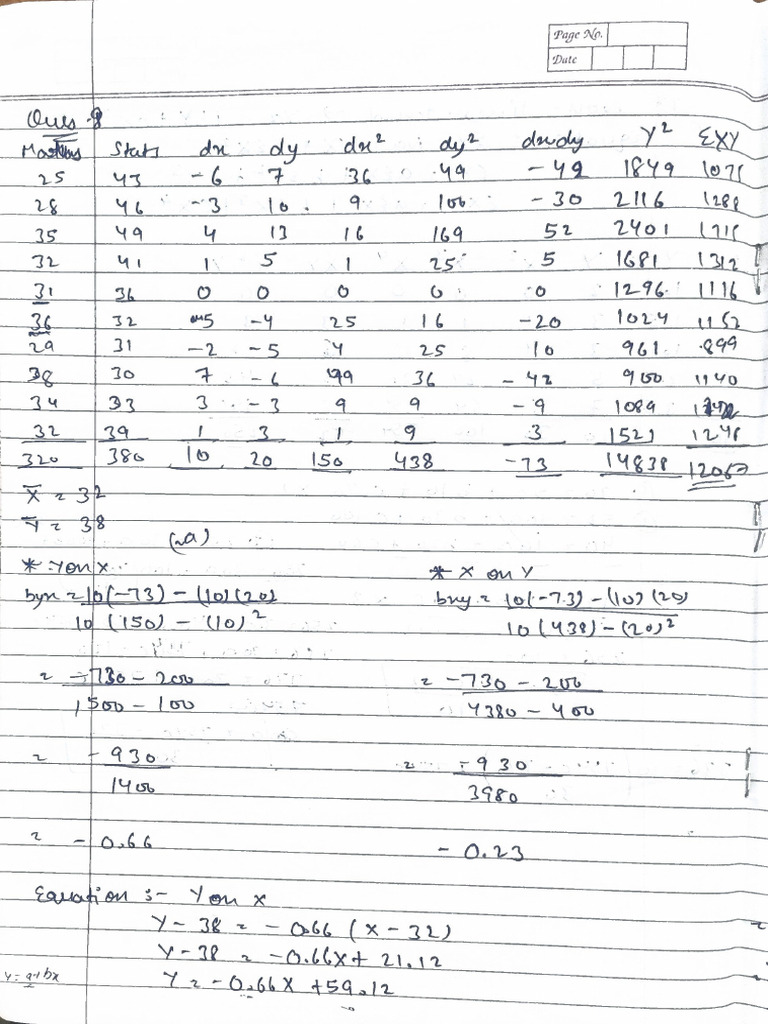 Page No.
Date
Ques 8
Stats dx dy dx² dy² dxdy Y² ΣXY
25 43 -6 7 36 49 -42 1849
28 46 -3 10 9 100 -30 2116 1288
35 49 4 13 16 169 52 2401 1715
32 41 1 5 1 25 5 1681 1312
31 36 0 0 0 0 0 1296 1116
36 32 5 -4 25 16 -20 1024 1152
29 31 -2 -5 4 25 10 961 899
38 30 7 -6 49 36 -42 900 1140
34 33 3 -3 9 9 -9 1089
32 39 1 3 1 9 3 1521 1248
320 380 10 20 150 438 -73 14838 12067
X̄ = 32
Ȳ = 38
(a)
* Y on X
* X on Y
byx = 10(-73) - (10)(20)
10(150) - (10)²
bxy = 10(-73) - (10)(20)
10(438) - (20)²
= -730 - 200
1500 - 100
= -730 - 200
4380 - 400
= -930
1400
= -930
3980
= -0.66
-0.23
Equation :- Y on X
Y - 38 = -0.66 (X - 32)
Y - 38 = -0.66X + 21.12
Y = a+bx
Y = -0.66X + 59.12